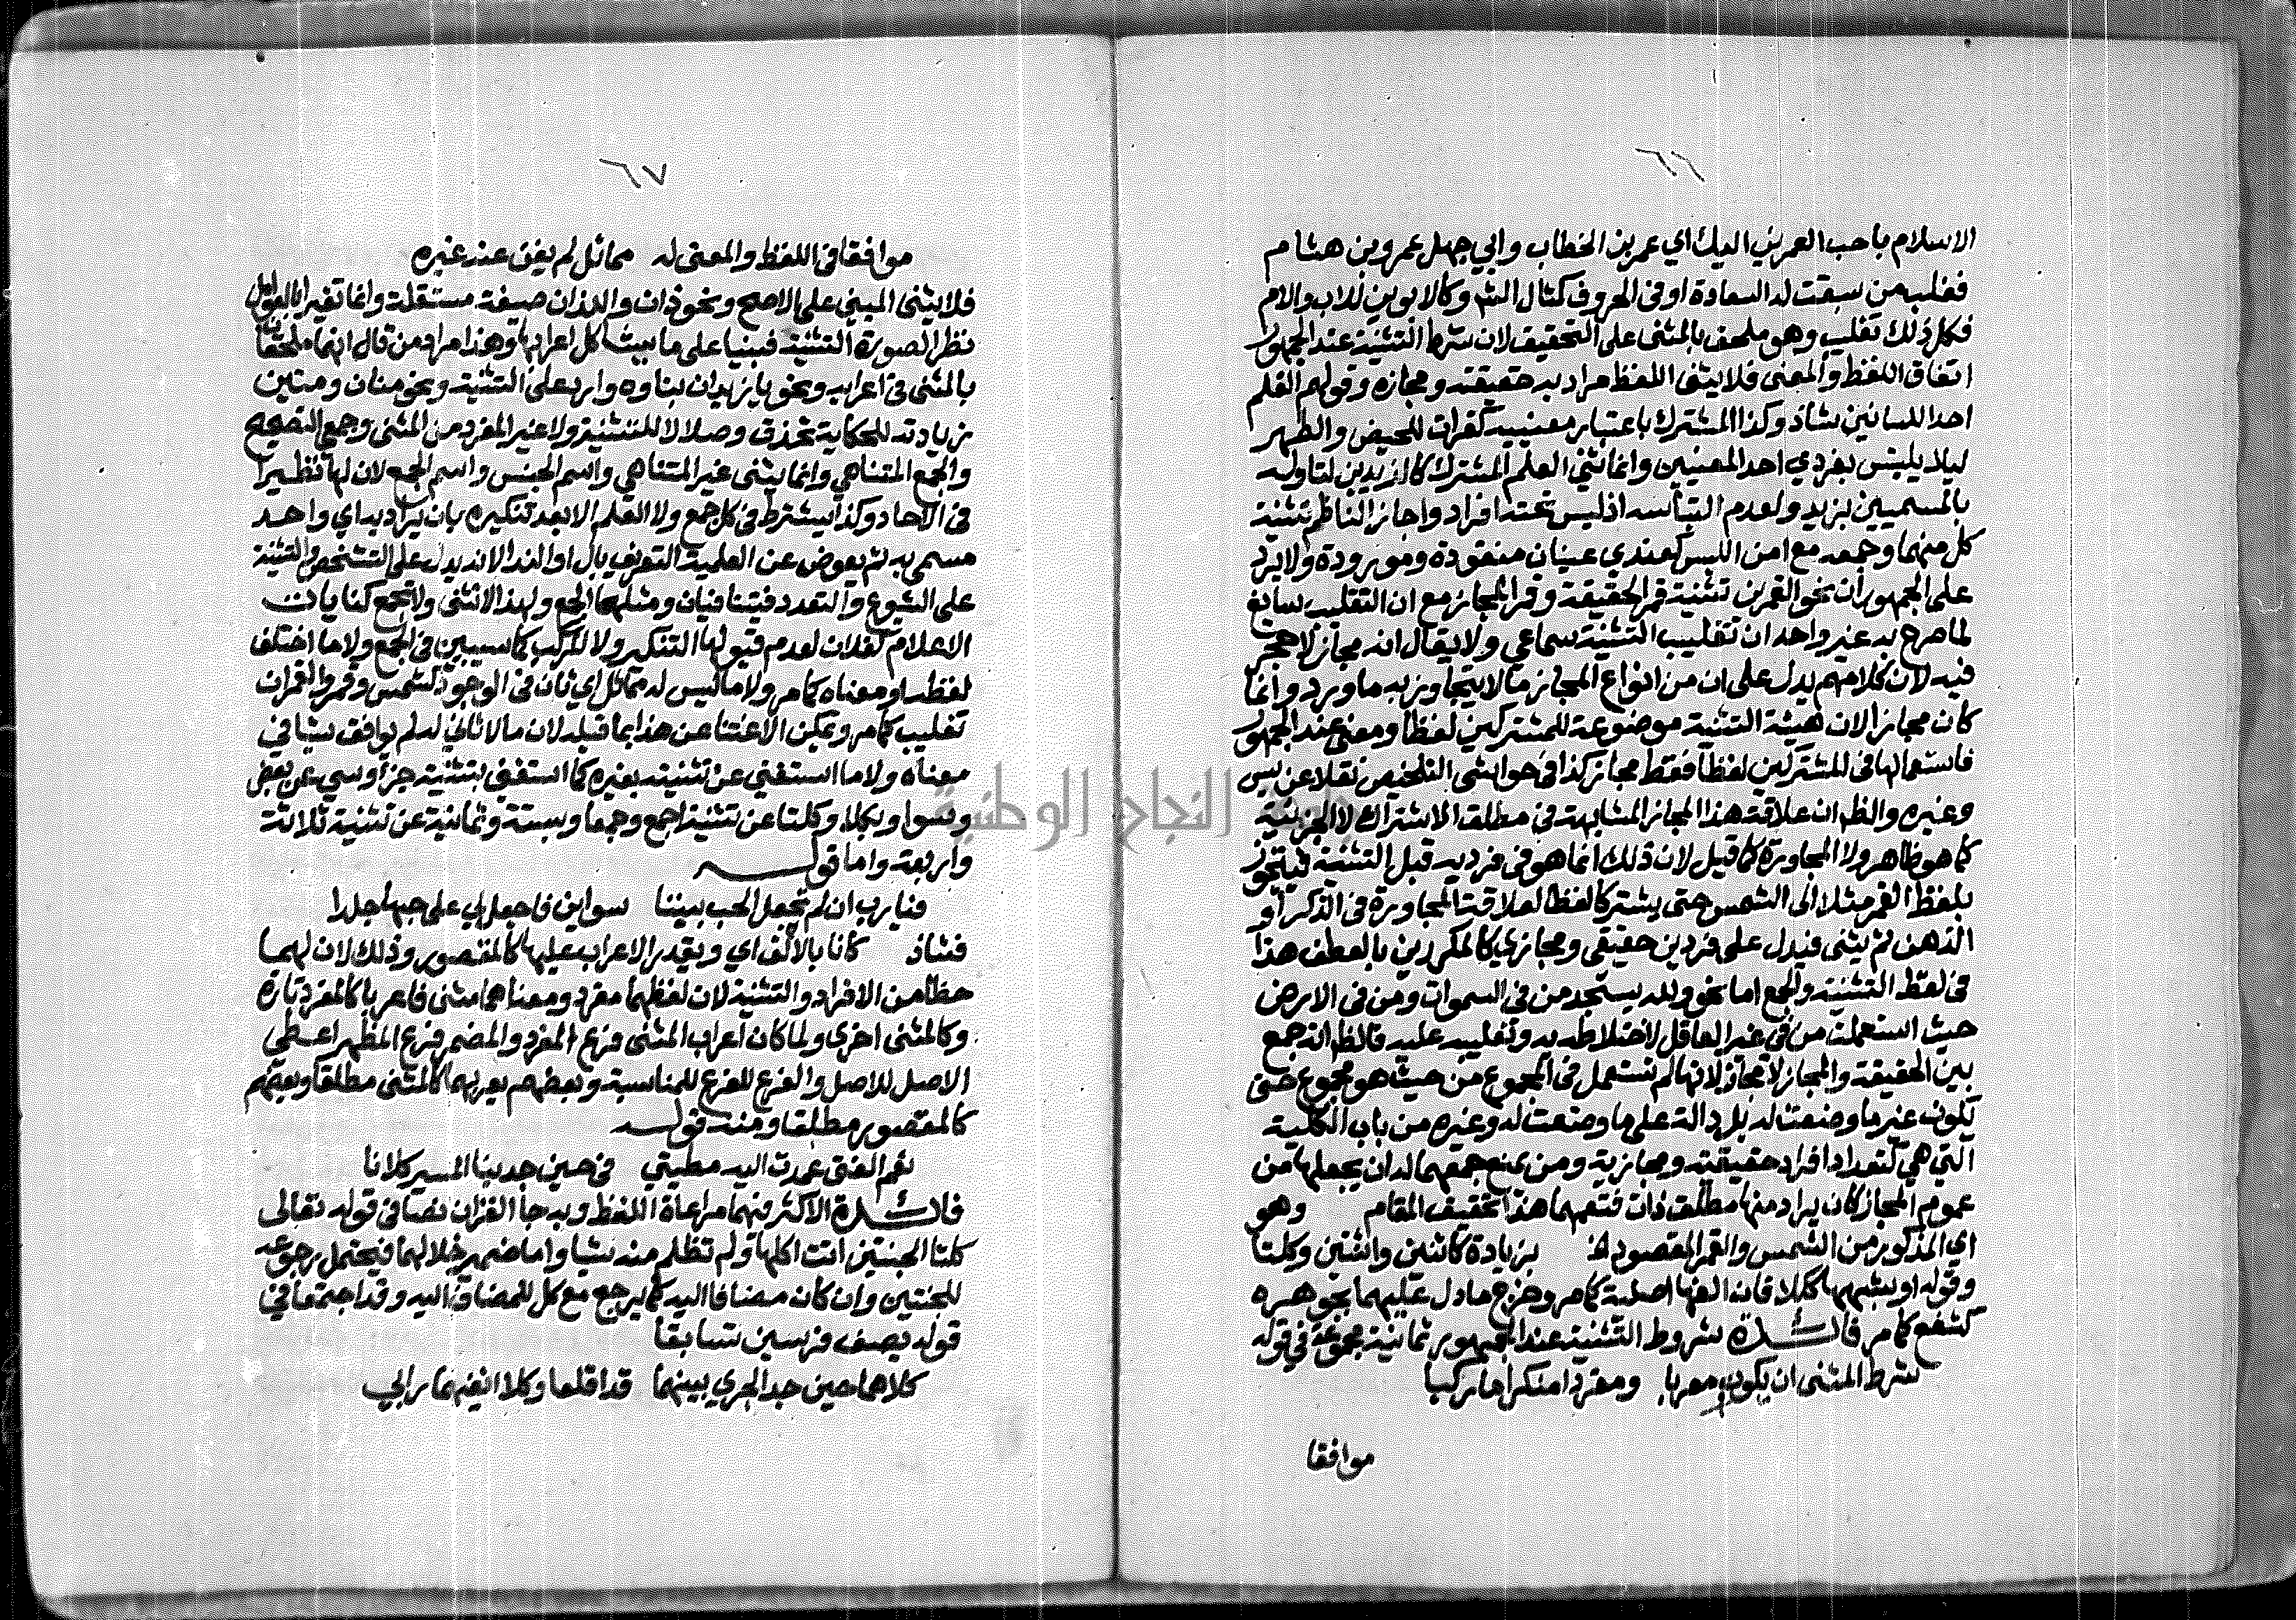 ٦٦
الاسلام باحب العمرين اليك اي عمر بن الخطاب وابي جهل عمرو بن هشام
فغلب من سبقت له السعادة او في الحروف كمثال الشم وكالابوين للاب والام
فكل ذلك تغليب وهو ملحق بالمثنى على التحقيق لان شرط التثنية عند الجمهور
اتفاق اللفظ والمعنى فلا يثنى اللفظ مراد به حقيقته ومجازه وقولهم القلم
احد اللسانين شاذ وكذا المشترك باعتبار معنييه كقرات للحيض والطهر
ليلا يلبس بفردي احد المعنيين وانما ثني العلم المشترك كالزيدين لتاوله
بالمسميين بزيد ولعدم التباسه اذ ليس تحته افراد واجاز الناظم تثنية
كل منهما وجمعه مع امن اللبس كعندي عينان منقودة ومورودة ولا يرد
على الجمهور ان نحو القمرين تثنية قمر الحقيقة وقمر المجاز مع ان التغليب سايغ
لما صرح به غير واحد ان تغليب التثنية سماعي ولا يقال انه مجاز لا حجر
فيه لان كلامهم يدل على ان من انواع المجاز ما لا يتجاوز به ما ورد وانما
كان مجازا لان هيئة التثنية موضوعة للمشتركين لفظا ومعنى عند الجمهور
فاستعمالها في المشتركين لفظا فقط مجاز كذا في حواشي التلخيص نقلا عن يس
وغيره والظ ان علاقة هذا المجاز المشابهة في مطلق الاشتراك لا الجزئية
كما هو ظاهر ولا المجاورة كما قيل لان ذلك انما هو في فرديه قبل التثنية فيتجوز
بلفظ القمر مثلا الى الشمس حتى يشتركا لفظا لعلاقة المجاورة في الذكر او
الذهن ثم يثنى فيدل على فردين حقيقي ومجازي كالمكررين بالعطف هذا
في لفظ التثنية والجمع اما نحو ولله يسجد من في السموات ومن في الارض
حيث استعملت من في غير العاقل لاختلاطه به وتغليبه عليه فالظ انه جمع
بين الحقيقة والمجاز لا مجاز لانها لم تستعمل في المجموع من حيث هو مجموع حتى
تكون غير ما وضعت له بل دالة على ما وضعت له وغيره من باب الكلية
التي هي لتعداد افراد حقيقته ومجازية ومن يمنع جمعهما له ان يجعلها من
عموم المجاز كان يراد منها مطلق ذات فتعمهما هذا تحقيق المقام وهو
اي المذكور من الشمس والقمر المقصود بزيادة كاثنين واثنتين وكلتا
وقوله او شبهها ككلا فان الفها اصلية كما مر وخرج ما دل عليهما بجوهره
كشفع كما مر فائدة شروط التثنية عند الجمهور ثمانية مجموعة في قوله
شرط المثنى ان يكون معربا ومفردا منكرا ما ركبا
موافقا
٦٧
موافقا في اللفظ والمعنى له مماثل لم يغن عنه غيره
فلا يثنى المبني على الاصح ونحو ذان واللذان صيغة مستقلة وانما تغيرا بالعوامل
نظرا لصورة التثنية فبنيا على ما يشاكل اعرابها وهذا مراد من قال انهما ملحقان
بالمثنى في اعرابه ونحو يا زيدان بناوه وارد على التثنية ونحو منان ومنين
زيادته للحكاية تحذف وصلا لا للتثنية ولا غير المفرد من المثنى وجمع التصحيح
والجمع المتناهي وانما يثنى غير المتناهي واسم الجنس واسم الجمع لان لها نظيرا
في الاحاد وكذا يشترط في كل جمع ولا العلم الا بعد تنكيره بان يراد به اي واحد
مسمى به ثم يعوض عن العلمية التعريف بال او الندا لانه يدل على التشخص والتثنية
على الشيوع والتعدد فيتنافيان ومثلهما الجمع ولهذا لا تثنى ولا تجمع كنايات
الاعلام كفلان لعدم قبولها التنكير ولا المركب كما سيبين في الجمع ولا ما اختلف
لفظه او معناه كما مر ولا ما ليس له مماثل اي ثان في الوجود كشمس وقمر والقمران
تغليب كما مر ويمكن الاغتنا عن هذا بما قبله لان ما لا ثاني له لم يوافق شيا في
معناه ولا ما استغني عن تثنيته بغيره كما استغنى بتثنية جزا وسي عن بعض
وسوا وبكلا وكلتا عن تثنية اجمع وجمعا وبستة وثمانية عن تثنية ثلاثة
واربعة واما قوله
فيا رب ان لم تجعل الحب بيننا سواين فاجعل لي على حبها جلدا
فشاذ كانا بالالف اي ويقدر الاعراب عليها كالمقصور وذلك لان لهما
حظا من الافراد والتثنية لان لفظهما مفرد ومعناهما مثنى فاعربا كالمفرد تارة
وكالمثنى اخرى ولما كان اعراب المثنى فرع المفرد والمضمر فرع المظهر اعطي
الاصل للاصل والفرع للفرع للمناسبة وبعضهم يعربهما كالمثنى مطلقا وبعضهم
كالمقصور مطلقا ومنه قوله
نعم الفتى عمدت اليه مطيتي في حين جد بنا المسير كلانا
فائدة الاكثر فيهما مراعاة اللفظ وبه جا القران نصا في قوله تعالى
كلتا الجنتين اتت اكلها ولم تظلم منه شيا واما ضمير خلالهما فيحتمل رجوعه
للجنتين وان كان مضافا اليه كما يرجع مع كل للمضاف اليه وقد اجتمعا في
قوله يصف فرسين تسابقا
كلاهما حين جد الجري بينهما قد اقلعا وكلا انفيهما رابي